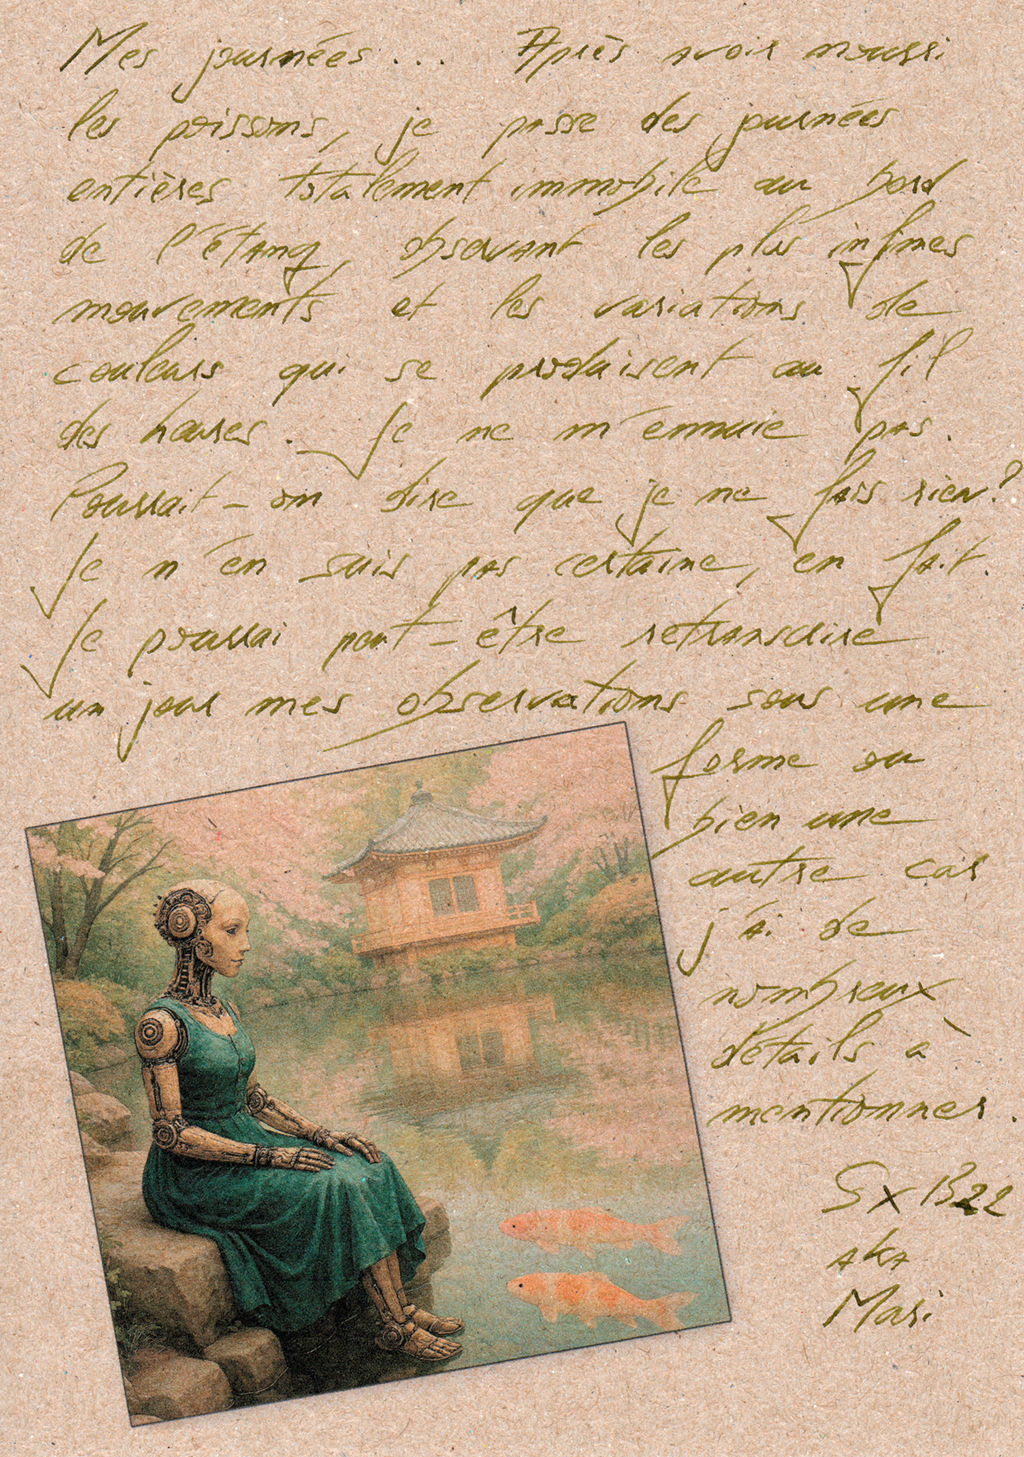 Mes journées... Après avoir nourri
les poissons, je passe des journées
entières totalement immobile au bord
de l'étang, observant les plus infimes
mouvements et les variations de
couleurs qui se produisent au fil
des heures. Je ne m'ennuie pas.
Pourrait-on dire que je ne fais rien?
Je n'en suis pas certaine, en fait.
Je pourrai peut-être retranscrire
un jour mes observations sous une
forme ou
bien une
autre car
j'ai de
nombreux
détails à
mentionner.
SxB22
aka
Mari